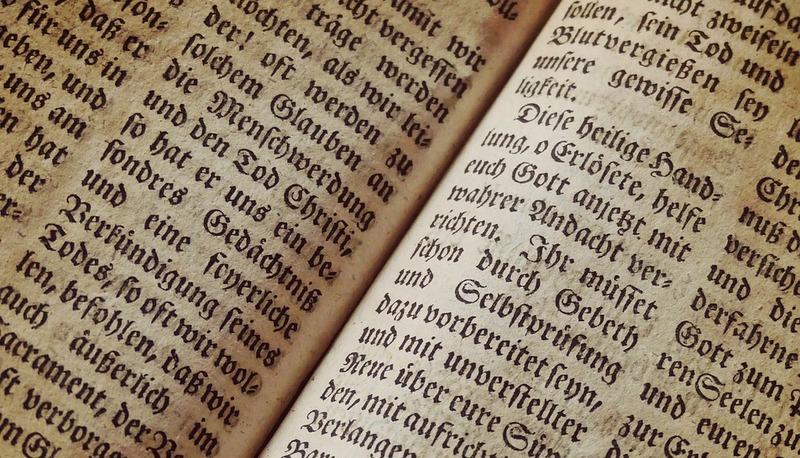 daß er
für uns in
und
uns am
hat
der
damit wir
nicht vergessen
möchten, als wir lei-
der! oft träge werden zu
solchem Glauben an
die Menschwerdung
und den Tod Christi,
so hat er uns ein be-
sondres Gedächtniß
und eine feyerliche
Verkündigung seines
Todes, so oft wir wol-
len, befohlen, daß wir
auch äußerlich im
Sacrament, der
verborge
nicht zweifeln
sollen, sein Tod und
Blutvergießen sey
unsere gewisse Se-
ligkeit.
Diese heilige Hand-
lung, o Erlösete, helfe
euch Gott anjetzt mit
wahrer Andacht ver-
richten. Ihr müsset
schon durch Gebeth
und Selbstprüfung
dazu vorbereitet seyn,
und mit unverstellter
Reue über eure Sün-
den, mit aufrich
Verlangen
Chr
nuß d
versiche
und die
derfahrne
Gott zum
ren Seelen zu
und euren
zur